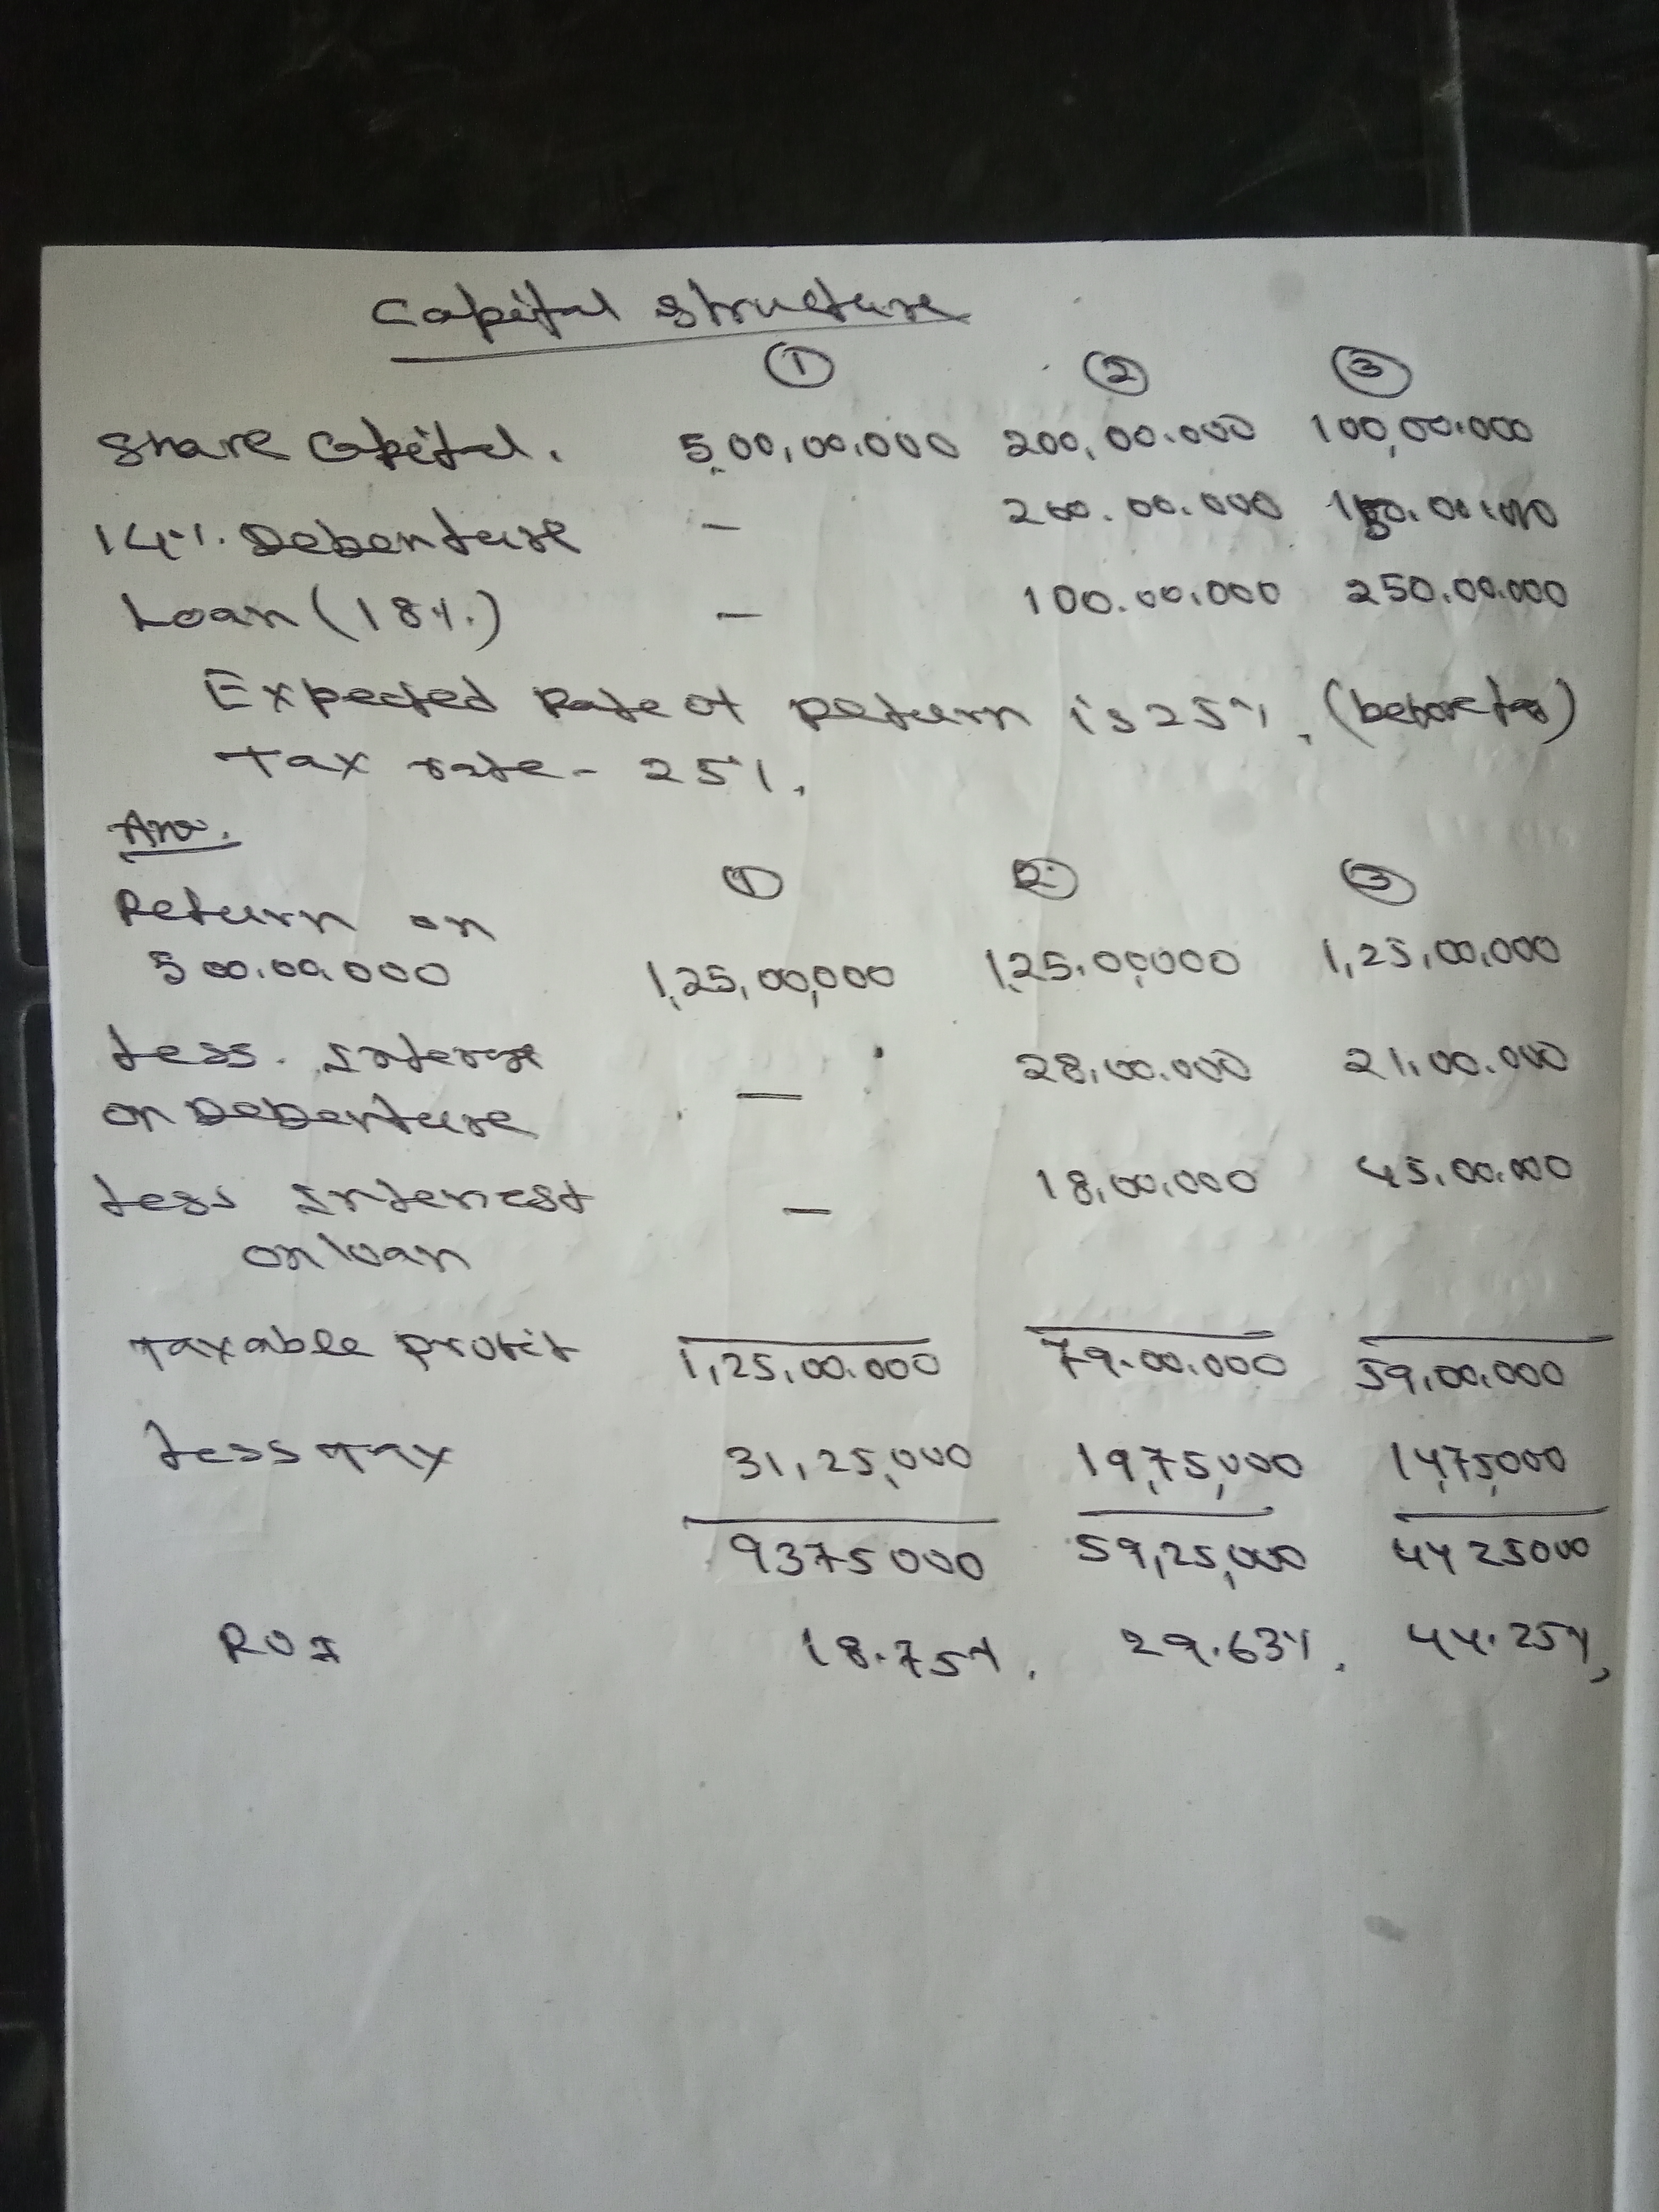 Capital Structure
① ② ③
Share Capital. 5,00,00,000 200,00.000 100,00.000
14%. Debenture — 200.00.000 150.00.000
Loan (18%.) — 100.00.000 250.00.000
Expected Rate of Return is 25%. (before tax)
Tax rate - 25%.
Ans.
① ② ③
Return on
500.00.000 1,25,00,000 1,25.00,000 1,25,00,000
Less. Interest
on Debenture — 28,00.000 21.00.000
Less Interest — 18,00,000 45,00.000
on loan
Taxable profit 1,25,00.000 79.00.000 59,00,000
Less Tax 31,25,000 19,75,000 14,75,000
9375000 59,25,000 4425000
ROI 18.75%. 29.63%. 44.25%,